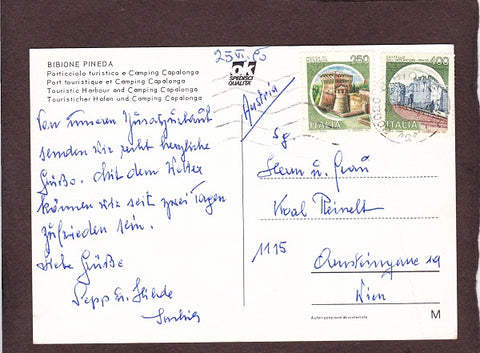 BIBIONE PINEDA
Porticciolo turistico e Camping Capalonga
Port touristique et Camping Capalonga
Touristic Harbour and Camping Capalonga
Touristicher Hafen und Camping Capalonga
25 VI.
SPEDISCI
QUALITÀ
350
ITALIA
400
ITALIA
Austria
Von unseren
senden wir recht herzliche
Grüße. Mit dem Wetter
können wir seit zwei Tagen
zufrieden sein.
Liebe Grüße
Sepp u. Hilde
Sg.
Herrn u. Frau
1115
19
Wien
Autorizzazione Ministeriale
M